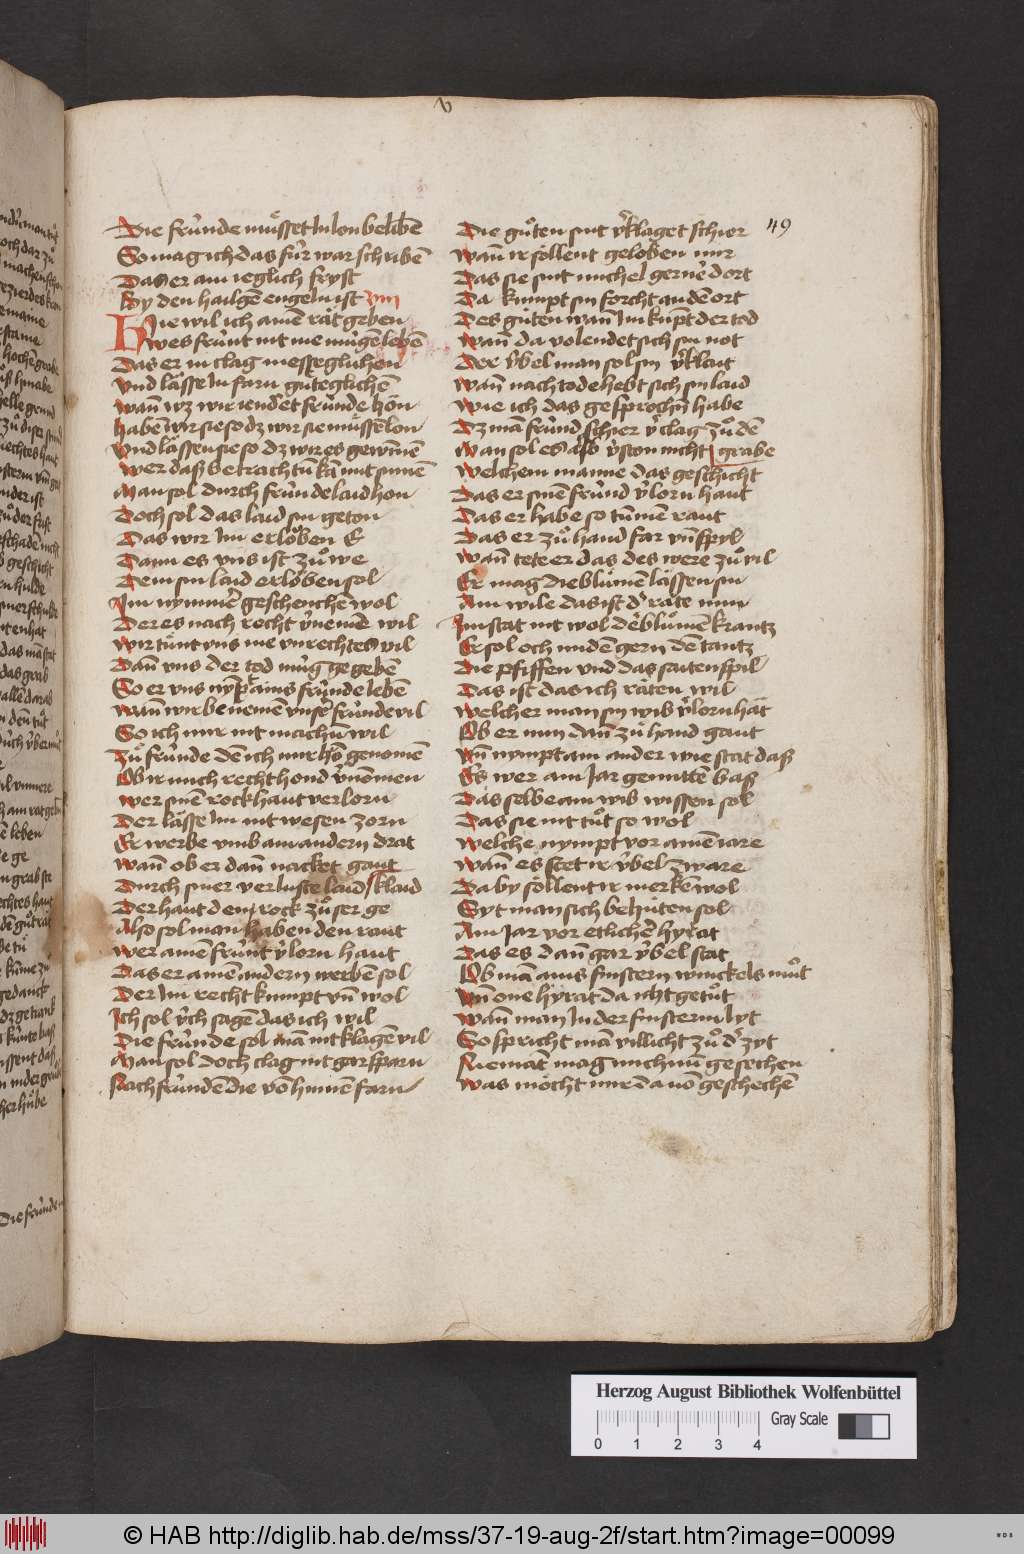 v
49
Die frúnde muͤsset In lon beliben
So mag ich das fúr war schriben
Das er am ieglich fryst
By den hailgē engeln ist viij
Hie wil ich amē rät geben
wes frúnt nit me múgē leben
Das er in clag messeglichen
vnd lässe In farn guͤteglichē
wann wz wir iendert frúnde hön
haben wir sie so dz wir sie muͤssē lon
vnd lässen sie so dz wir es gewinnē
wer daß betrachtē kā mit sinnē
Man sol durch frúnde laid hon
Doch sol das laid sin geton
Das wir Im erloͮben E
Dann es vns ist zuͦ we
Dem sin laid erloͮben sol
Im nymmer geschenchē wol
Der es nach recht v̄nemē wil
wir tuͤnt vns me vnrechtes vil
Dañ vns der tod múg gegebē
So er vns nympt ains frúnde lebē
wañ wir benemē vnser frúnde vil
So ich mir nit machē wil
Zuͦ frúnde dē ich mir hō genomē
Ob ir mich recht hond v̄nomen
wer sinē rock haut verlorn
Der lässe Im nit wesen zorn
Er werbe vmb am andern drat
wann ob er dañ nacket gaut
Durch siner verluste laid klaid
Der haut dem rock zuͦ ser ge
Also sol man haben den raut
wer amē frúnt v̄lorn haut
Das er amē andern werbē sol
Der Im recht kumpt vñ wol
Ich sol v́ch sagē das ich wil
Die frúnde sol man nit klagē vil
Man sol doch clag nit gar sparn
Nach frúnden die vō hinnē farn
Die guͦten sint v̄klaget schier
wañ ir soͤllent geloͮben mir
Das sie sint michel gernē dort
Da kumpt sin forcht an dē ort
Des guͦten wañ Im kūpt der tod
wañ da volendet sich sin not
Der v́bel man sol sin v̄klait
wañ nach tode hebt sich sin laid
wie ich das gesprochē habe
Dz mā frúnd schier v̄clag zuͦ dē
Man sol es also v̄ston nicht grabe
welchem manne das geschicht
Das er sinē frúnd v̄lorn haut
Das er habe so tummē raut
Das er zuͦ hand far vñ spyl
wañ tete er das des were zuͦ vil
Er mag die bluͤmē lässen sin
Am wile das ist d̄ räte min
Im stat nit wol dē bluͤmē krantz
Er sol och midē gern dē tantz
Die pfiffen vnd das saitenspil
Das ist das ich räten wil
welcher man sin wib v̄lorn hät
Ob er nun dañ zuͦ hand gaut
Vñ nympt am ander wie stat daß
Es wer am Jar gemittē baß
Das selbe am wib wissen sol
Das sie nit tuͦt so wol
welche nympt vor amē iare
wañ es stet ir v́bel zware
Da by soͤllent ir merkē wol
Syt man sich behuͤten sol
Am Jar vor etlichen hyrat
Das es dañ gar v́bel stat
Ob mā ains finstern winckels muͦt
Vñ one hyrat da icht getuͦt
wann man In der finstern lyt
So spricht mā villicht zuͦ d̄ zyt
Niemāt mag mich nū gesechen
was moͤcht mir da vō geschechē
Die frúnden
Herzog August Bibliothek Wolfenbüttel
Gray Scale
0 1 2 3 4
© HAB http://diglib.hab.de/mss/37-19-aug-2f/start.htm?image=00099